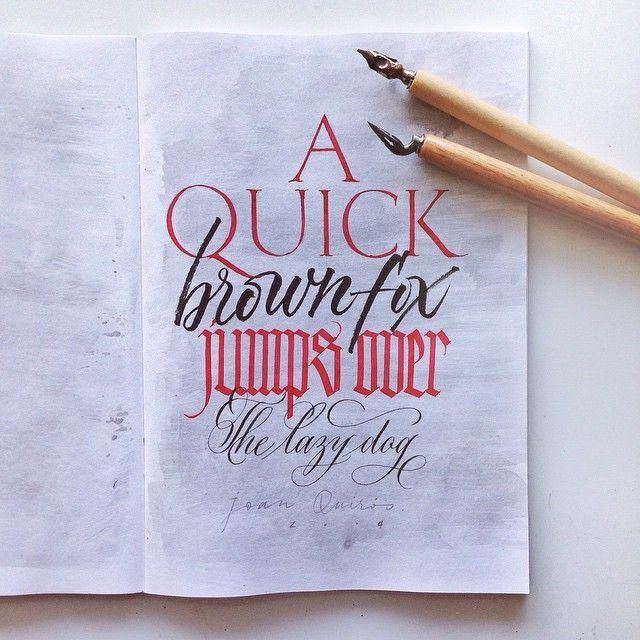 A
QUICK
brown fox
jumps over
The lazy dog
Joan Quirós.